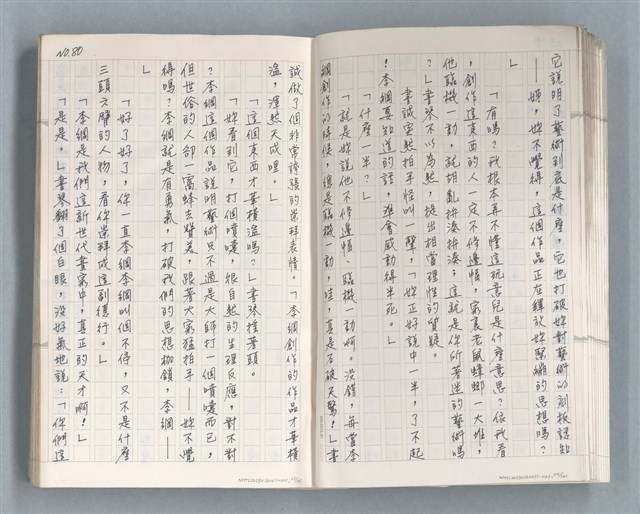 它說明了藝術到底是什麼，它也打破妳對藝術的刻板認知
——姊，妳不覺得，這個作品正在釋放妳緊繃的思想嗎？
」
「有嗎？我根本弄不懂這玩意兒是什麼意思？依我看
，創作這東西的人一定不修邊幅，窩裏老鼠蟑螂一大堆，
他臨機一動，就胡亂拼湊拼湊，這就是你所著迷的藝術嗎
？」書琴不以為然，提出相當理性的質疑。
書誠突然拍手怪叫一聲，「妳正好說中一半，了不起
！李綱要知道的話，准會感動得半死。」
「什麼一半？」
「就是妳說他不修邊幅、臨機一動啊。沒錯，每當李
綱創作的時候，總是臨機一動，哇，真是石破天驚！」書
NO.80
誠做了個非常誇張的崇拜表情。「李綱創作的作品才暴橫
溫，渾然天成哩。」
「這個東西才暴橫溫嗎？」書琴搖著頭。
「妳看到它，打個噴嚏，很自然的生理反應，對不對
？李綱這個作品說明藝術只不過是大師打一個噴嚏而已，
但世俗的人卻一窩蜂去讚美，跟著大家猛拍手——妳不覺
得嗎？李綱就是有勇氣，打破我們的思想枷鎖，李綱——
」
「好了好了，你一直李綱李綱叫個不停，又不是什麼
三頭六臂的人物，看你崇拜成這副德行。」
「李綱是我們這新世代畫家中，真正的天才啊！」
「是是。」書琴翻了個白眼，沒好氣地說：「你們這